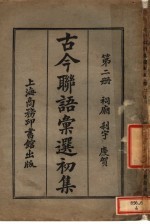 第二册 祠廟 刹宇 慶賀
古今聯語彙選初集
上海商務印書館出版